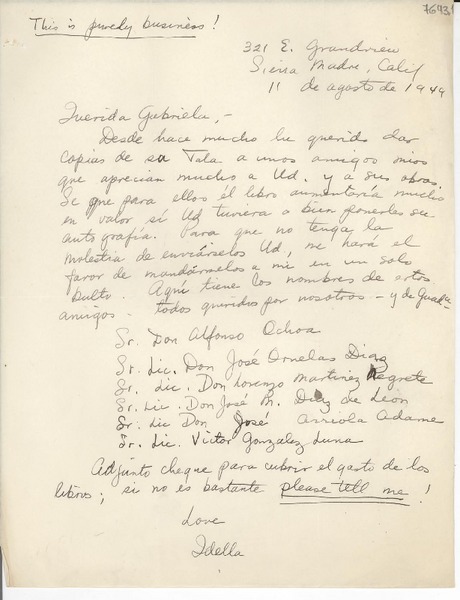 76931
This is purely business!
321 E. Grandview
Sierra Madre, Calif
11 de agosto de 1949
Querida Gabriela,-
Desde hace mucho he querido dar
copias de su Tala a unos amigos mios
que aprecian mucho a Ud. y a sus obras.
Se que para ellos el libro aumentaría mucho
en valor si Ud tuviera a bien ponerles su
autografía. Para que no tenga la
molestia de enviárselos Ud, me hará el
favor de mandárselos a mi en un solo
bulto. Aquí tiene los nombres de estos
amigos - todos queridos por nosotros - y de Guada
Sr. Don Alfonso Ochoa
Sr. Lic. Don José Ornelas Diaz
Sr. Lic. Don Lorenzo Martinez Negrete
Sr. Lic. Don José M. Diaz de Leon
Sr. Lic Don José Arriola Adame
Sr. Lic. Victor Gonzalez Luna
Adjunto cheque para cubrir el gasto de los
libros; si no es bastante please tell me!
Love
Idella